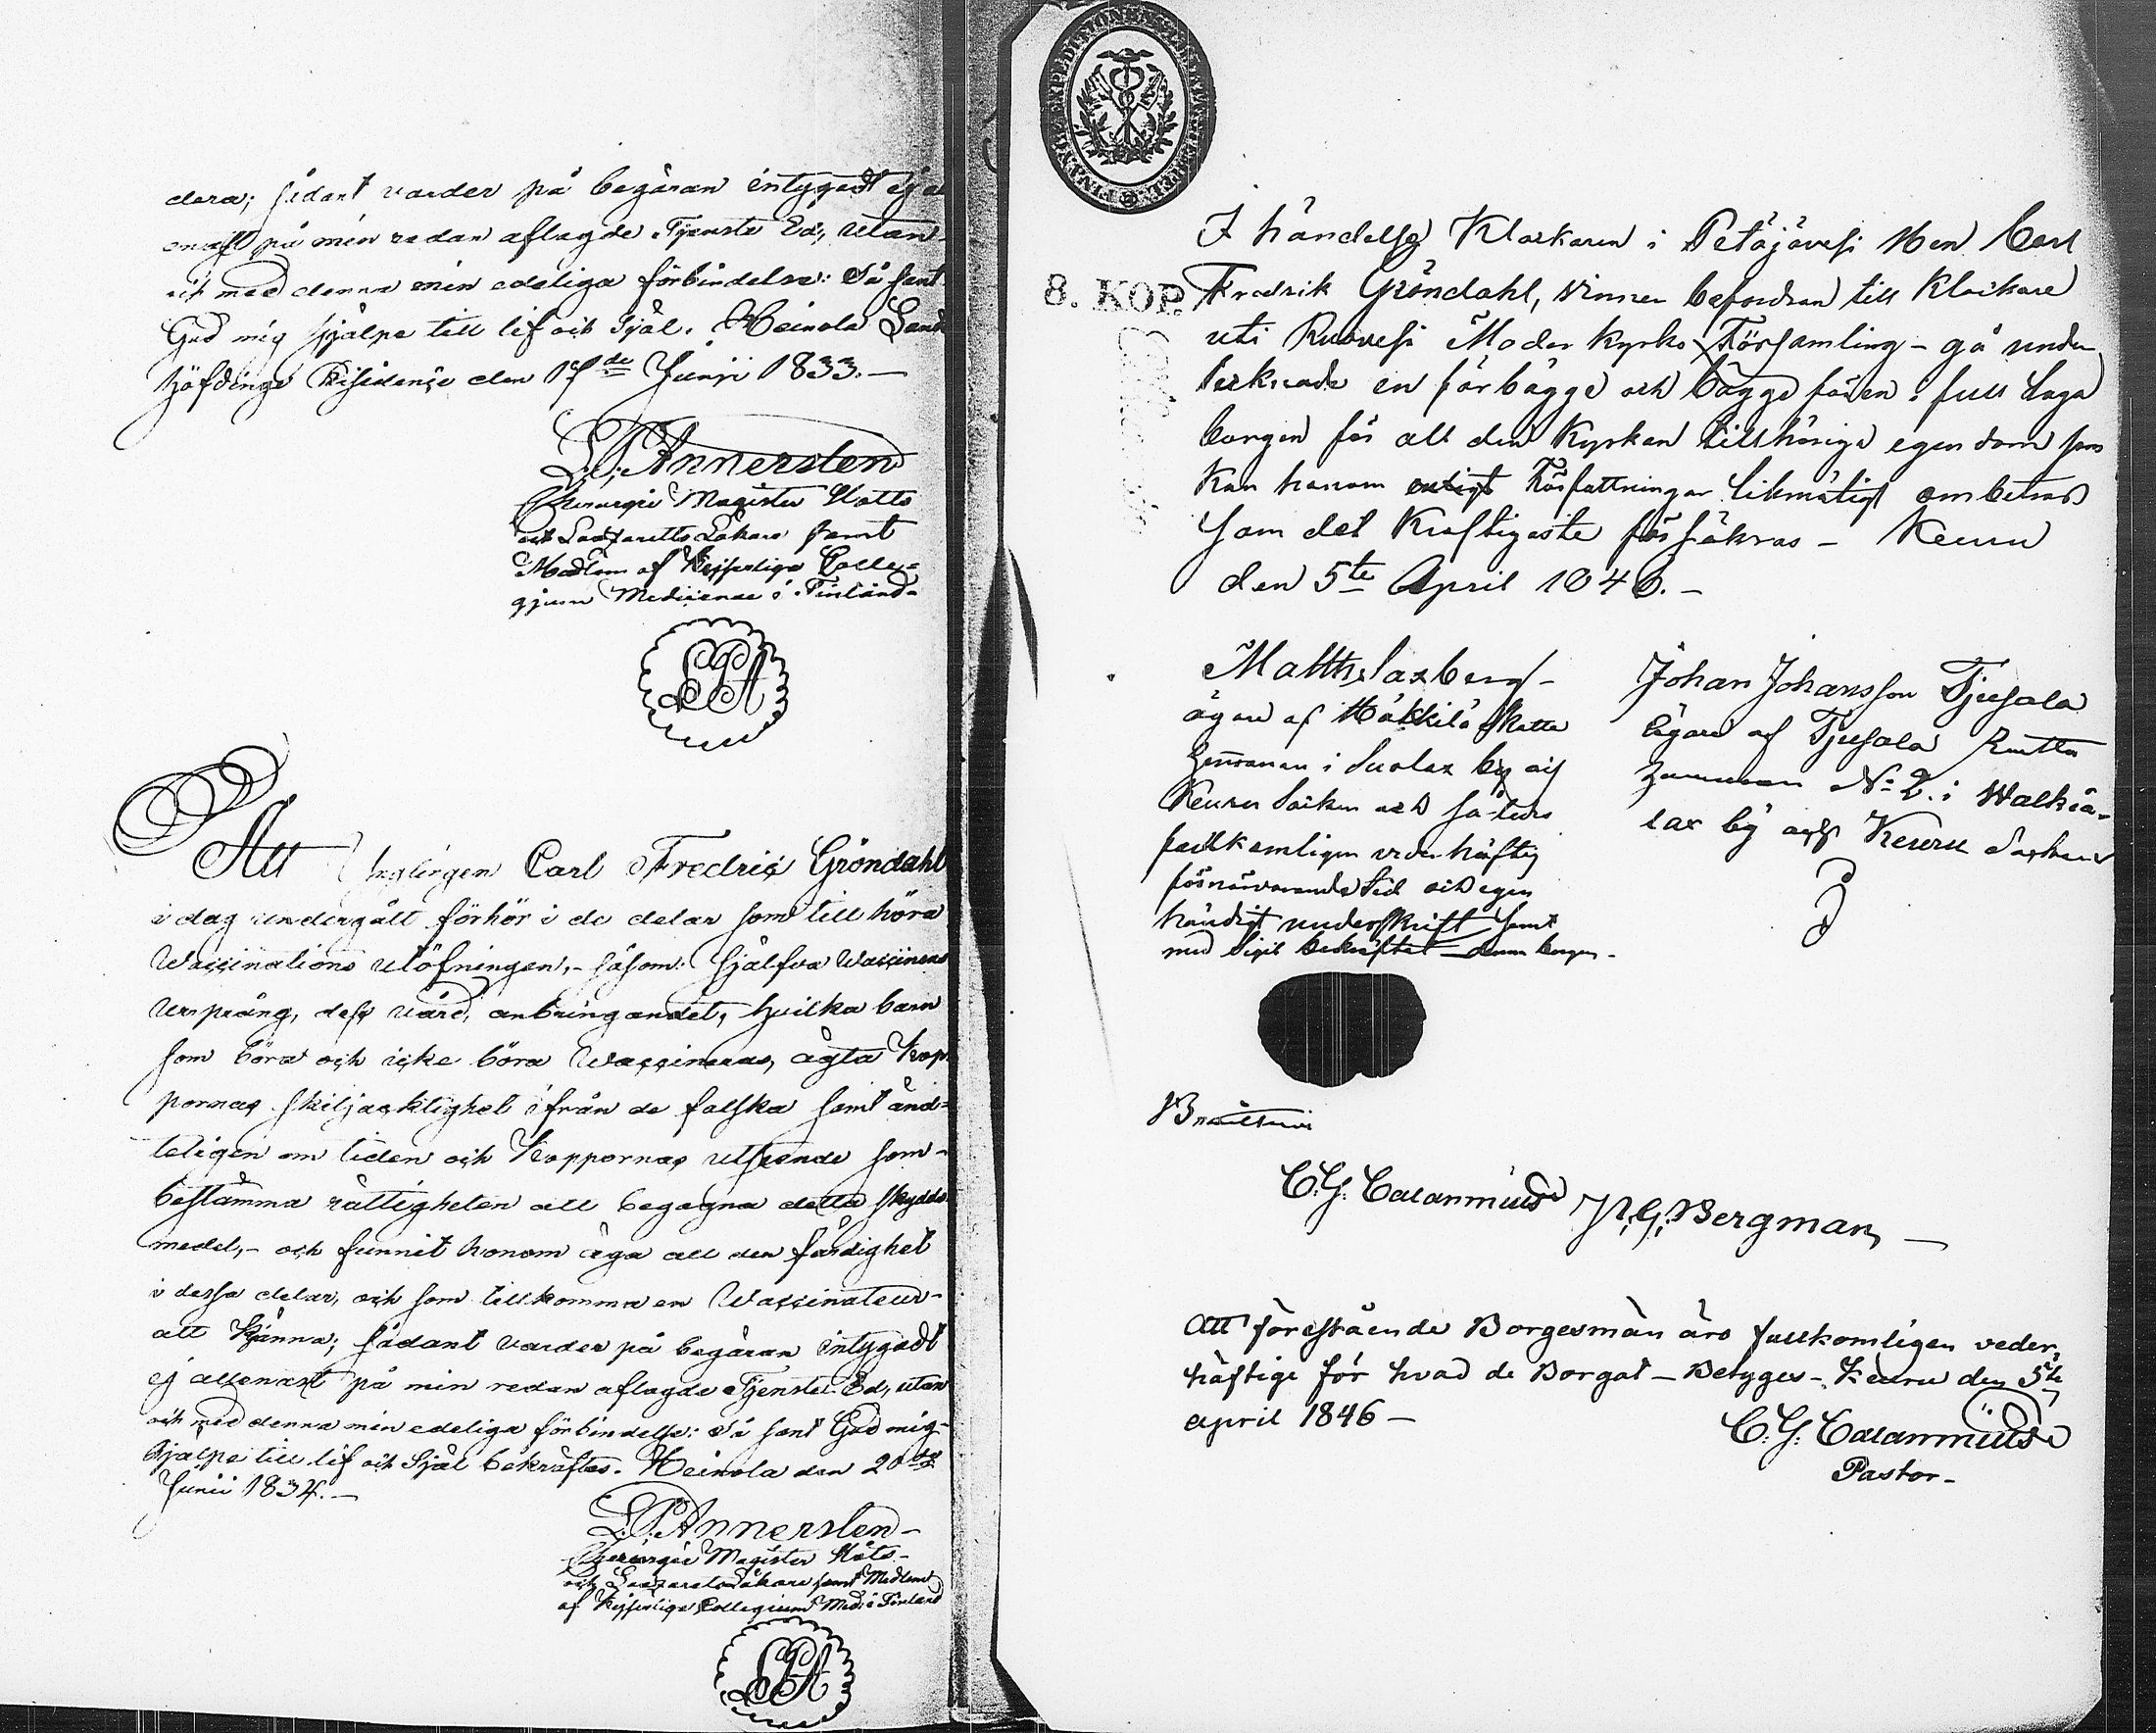 dera; sådant varder på begäran intygadt ej al
enast på min redan aflagde Tjenste Ed, utan
ock med denna min edeliga förbindelse: Så sant
Gud mig hjälpe till lif och Själ. Heinola Lands
höfdinge Residence den 17de Junii 1833.—
L.P. Annersten
Chirurgie Magister Slotts
och Lazaretts Läkare samt
Medlem af Kejserliga Colle-
gium Medicinae i Finland.
LPA
Att Ynglingen Carl Fredric Gröndahl
i dag undergått förhör i de delar som tillhöra
Waccinations utöfningen,- såsom: Sjelfva Waccinens
ursprång, dess vård, anbringandet, hvilka barn
som böra och icke böra Waccineras, ägta Kop-
pornas skiljacktighet ifrån de falska samt änd-
teligen om tiden och Koppornas utseende som
bestämma rättigheten att begagna detta skydds
medel,- och funnit honom äga all den färdighet
i dessa delar, och som tillkomma en Waccinateur
att känna; sådant varder på begäran intygadt
ej allenast på min redan aflagde Tjenste Ed, utan
och med denna min edeliga förbindelse: så sant Gud mig
hjälpe till lif och Själ bekräftas. Heinola den 20de
Junii 1834.—
L.P. Annersten—
Chirurgie Magister Slots-
och Lazarets Läkare samt Medlem
af Kejserliga Collegium Med: i Finland
LPA
8. KOP.
I händelse Klockaren i Petäjävesi Herr Carl
Fredrik Gröndahl, vinner befordran till Klockare
uti Ruovesi Moder Kyrko Församling – gå under
tecknade en för bägge och bägge för en i full laga
borgen för all den Kyrkan tillhörige egendom som
kan honom enligt Författningar likmätigt ombetros
som det kraftigaste försäkras – Keuru
den 5te April 1846.–
Matths Saxberg–
ägare af Häkkilä Skatte
hemman i Suolax by af
Keuru Socken och så-
fullkomligen vederhäftig
förnärvarande tid och egen
händigt underskrift samt
med Sigil bekräftat denna borgen.
Johan Johansson Tjusala
Ägare af Tjusala Rustt
hemman No 2. i Walkia-
lax by och Keuru Socken
Bevittna
C.G. Calamnius
J.G. Bergman—
Att föreståënde Borgesmän äro fullkomligen veder,
häftige för hvad de Borgat – Betyges – Keuru den 5te
april 1846 –
C.G. Calamnius
Pastor–